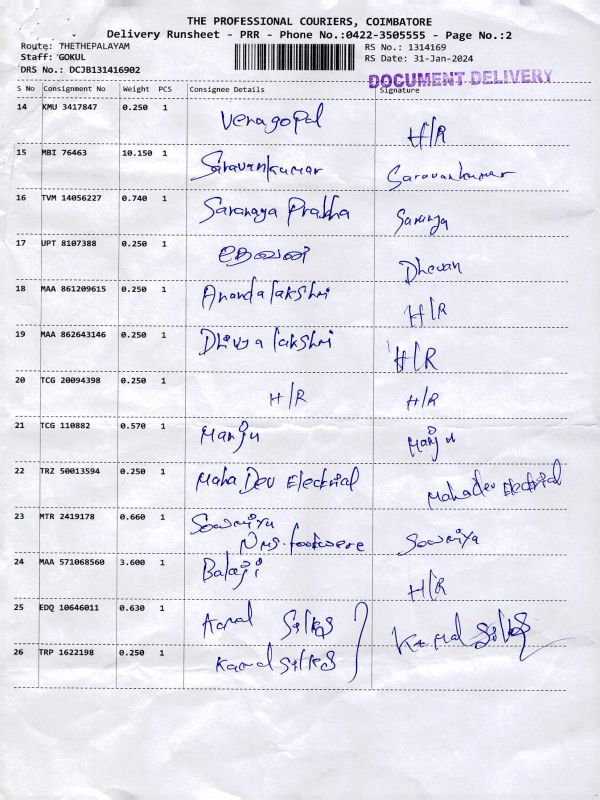 THE PROFESSIONAL COURIERS, COIMBATORE
Delivery Runsheet - PRR - Phone No.:0422-3505555 - Page No.:2
Route: THETHEPALAYAM RS No.: 1314169
Staff: GOKUL RS Date: 31-Jan-2024
DRS No.: DCJB131416902 DOCUMENT DELIVERY
S No Consignment No Weight PCS Consignee Details Signature
14 KMU 3417847 0.250 1 Venagopal H/R
15 MBI 76463 10.150 1 Saravankumar Saravankumar
16 TVM 14056227 0.740 1 Saranaya Prabha Saranya
17 UPT 8107388 0.250 1 Dhevan
18 MAA 861209615 0.250 1 Anandalakshmi H/R
19 MAA 862643146 0.250 1 Dhivya lakshmi H/R
20 TCG 20094398 0.250 1 H/R H/R
21 TCG 110882 0.570 1 Manju Manju
22 TRZ 50013594 0.250 1 Maha Dev Electrial Mahadev Electrial
23 MTR 2419178 0.660 1 Sowmiya Sowmiya
Nms. footwere
24 MAA 571068560 3.600 1 Balaji H/R
25 EDQ 10646011 0.630 1 Kamal Silks Kamal Silks
26 TRP 1622198 0.250 1 Kamal Silks